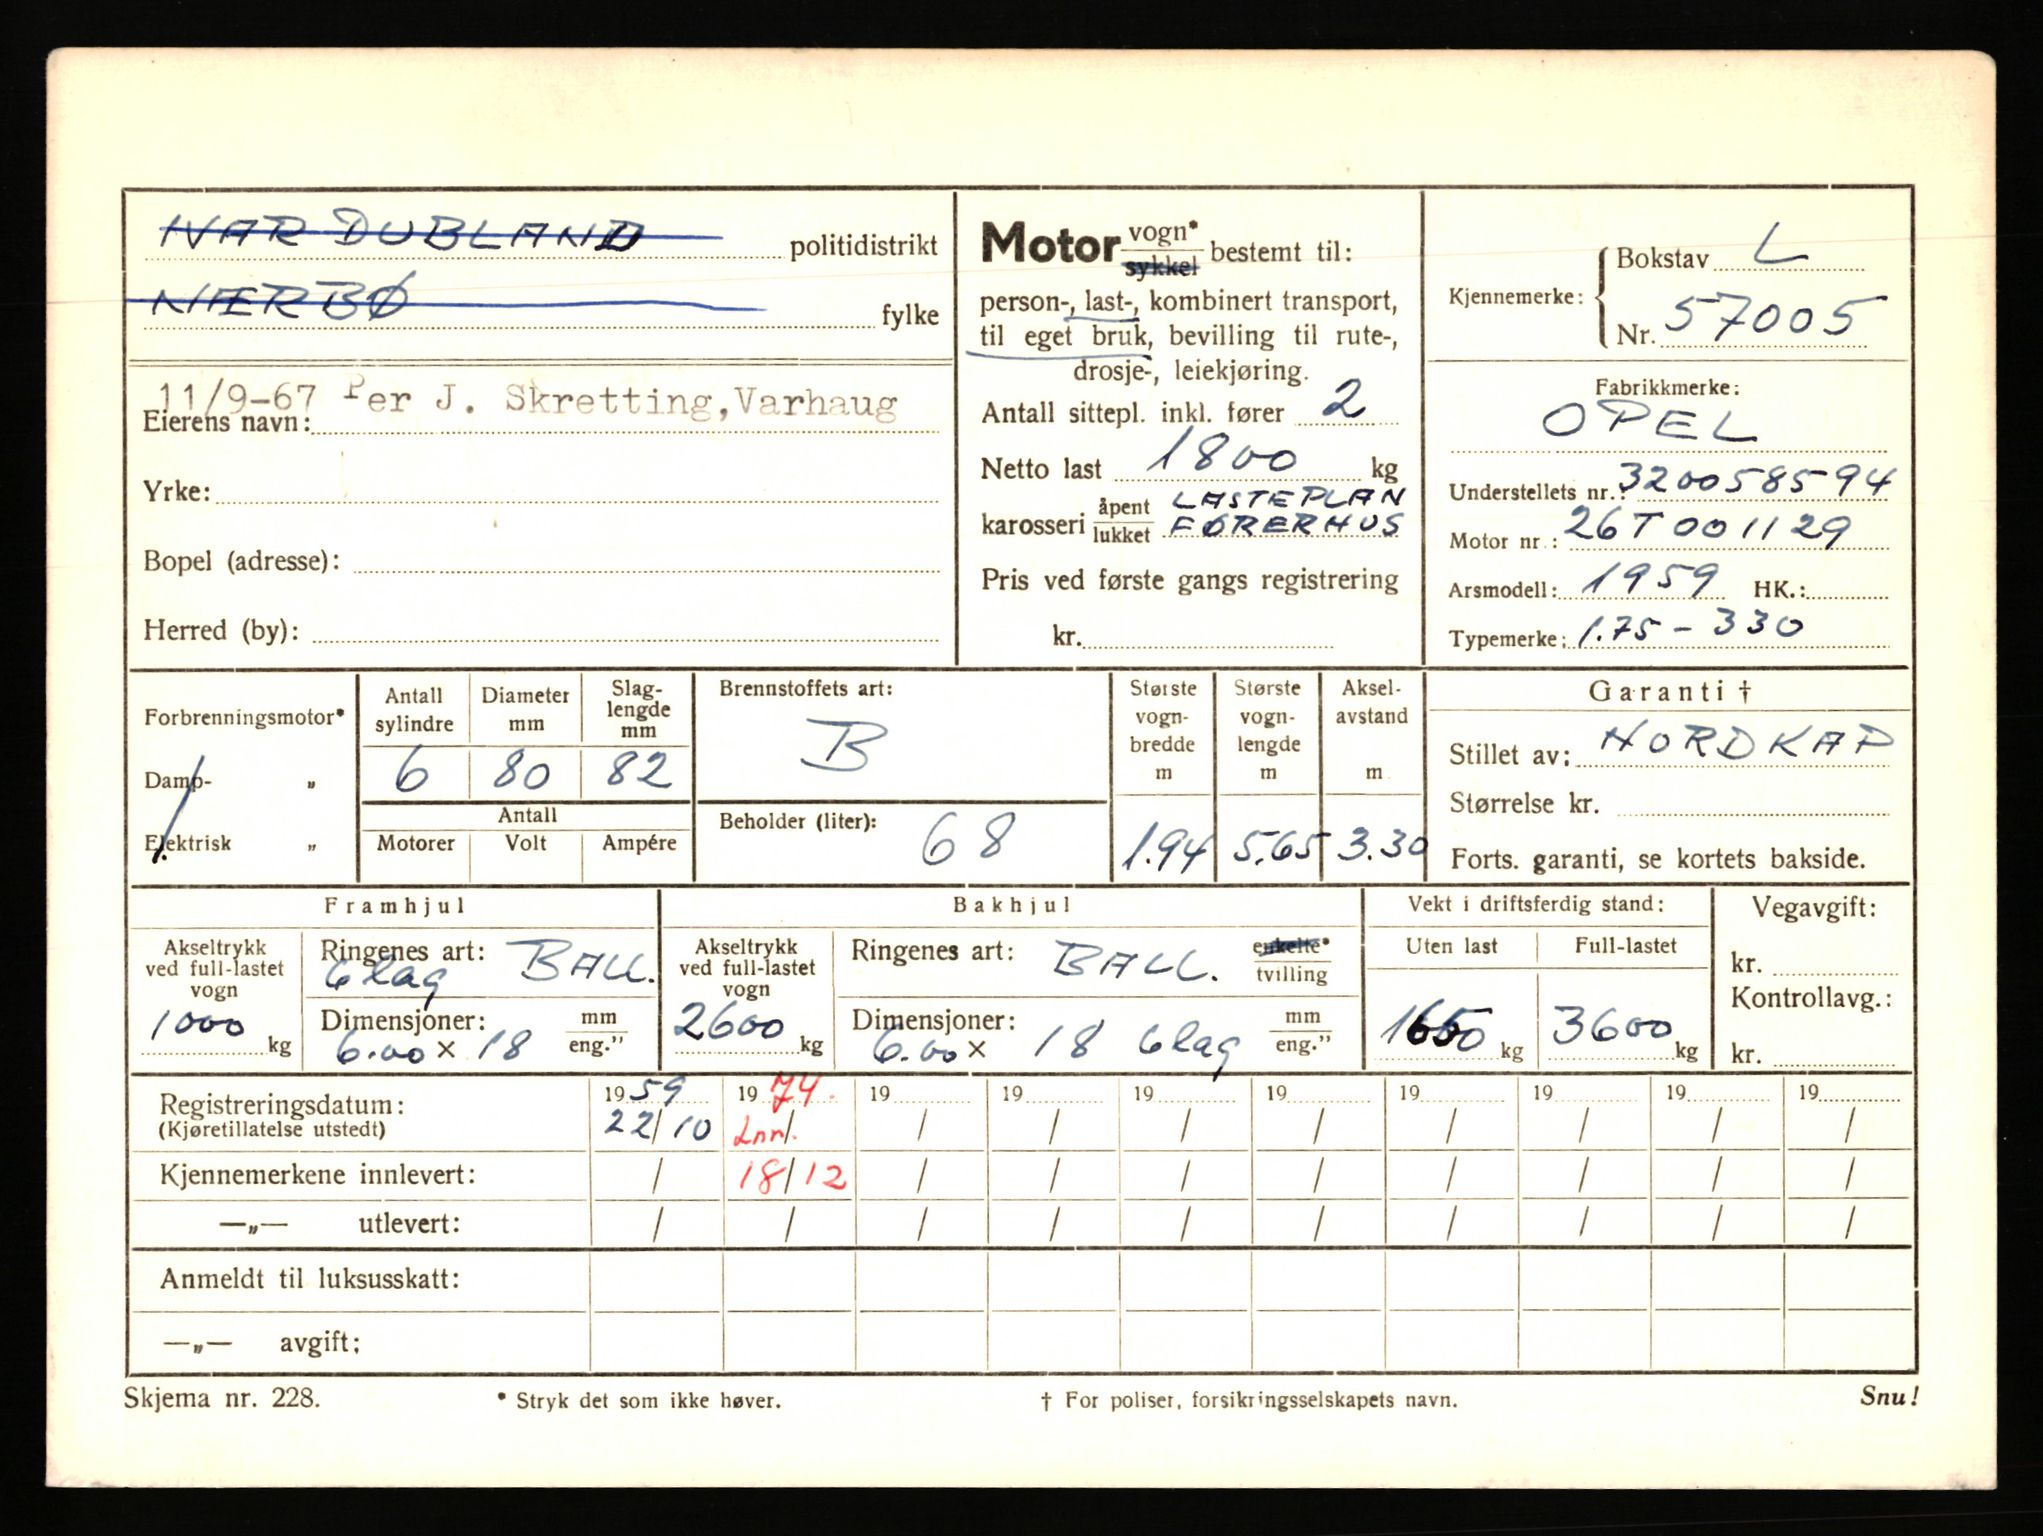 IVAR DUBLAND politidistrikt
NÆRBØ fylke
11/9-67 Per J. Skretting, Varhaug
Eierens navn:
Yrke:
Bopel (adresse):
Herred (by):
Motor vogn* sykkel bestemt til:
person-, last-, kombinert transport,
til eget bruk, bevilling til rute-,
drosje-, leiekjøring.
Antall sittepl. inkl. fører 2
Netto last 1800 kg
karosseri åpent LASTEPLAN
lukket FØRERHUS
Pris ved første gangs registrering
kr.
Kjennemerke: Bokstav L
Nr. 57005
Fabrikkmerke:
OPEL
Understellets nr.: 320058594
Motor nr.: 26T001129
Arsmodell: 1959 HK.:
Typemerke: 1.75-330
Forbrenningsmotor*
Damp- „
Elektrisk „
Antall sylindre Diameter mm Slag-lengde mm
6 80 82
Antall
Motorer Volt Ampére
Brennstoffets art:
B
Beholder (liter): 68
Største vogn-bredde m 1.94
Største vogn-lengde m 5.65
Aksel-avstand m 3.30
Garanti †
Stillet av: NORDKAP
Størrelse kr.
Forts. garanti, se kortets bakside.
Framhjul
Akseltrykk ved full-lastet vogn
1000 kg
Ringenes art: BALL.
6 lag
Dimensjoner: mm eng.”
6.00 x 18
Bakhjul
Akseltrykk ved full-lastet vogn
2600 kg
Ringenes art: BALL. enkelte* tvilling
Dimensjoner: mm eng.”
6.00 x 18 6 lag
Vekt i driftsferdig stand:
Uten last Full-lastet
1650 kg 3600 kg
Vegavgift:
kr.
Kontrollavg.:
kr.
Registreringsdatum: 1959 1974. 19 19 19 19 19 19 19 19
(Kjøretillatelse utstedt) 22/10 Inn/. / / / / / / / /
Kjennemerkene innlevert: / 18/12 / / / / / / / /
—„— utlevert: / / / / / / / / / /
Anmeldt til luksusskatt:
—„— avgift:
Skjema nr. 228. * Stryk det som ikke høver. † For poliser, forsikringsselskapets navn. Snu!